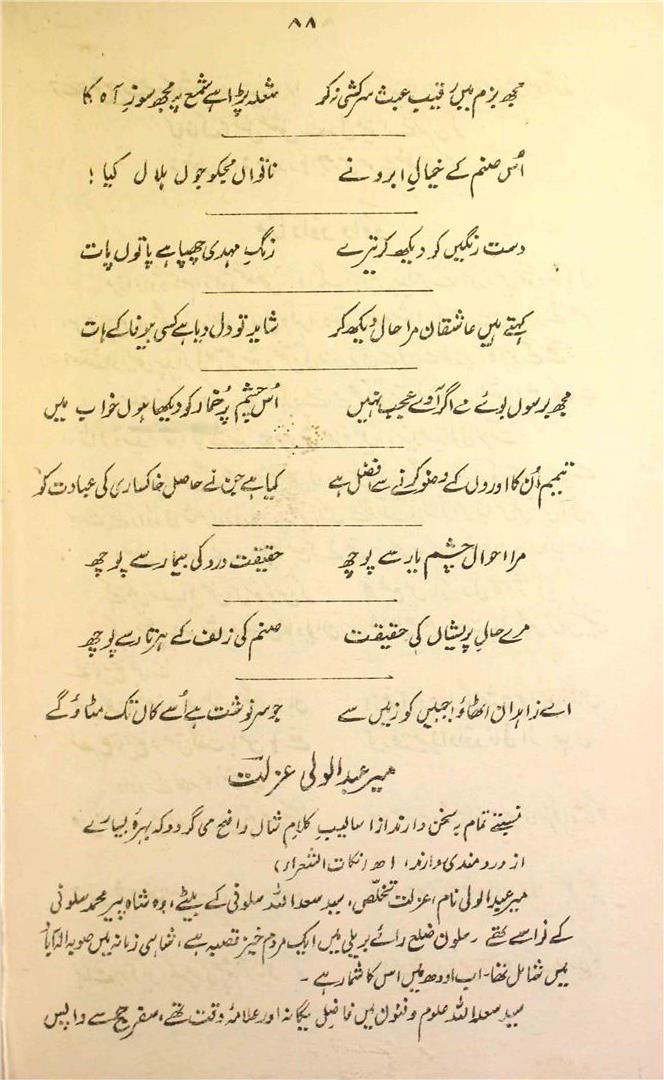 ۸۸
مجھ بزم میں رقیب عبث سرکشی نہ کر شعلہ پڑا ہے شمع پہ مجھ سوزِ آہ کا
اُس صنم کے خیالِ ابرو نے ناتواں مجکو جوں ہلال کیا!
دست رنگیں کو دیکھ کر تیرے رنگِ مہدی چھپا ہے پاتوں پات
کہتے ہیں عاشقان مرا حال دیکھ کر شاید تو دل دیا ہے کسی بیوفا کے ہات
مجھ برسوں بوئے اگر آوے عجب نہیں اُس چشمِ پُرخمار کو دیکھا ہوں خواب میں
تیمم اُن کا اوروں کے وضو کرنے سے افضل ہے کیا ہے جن نے حاصل خاکساری کی عبادت کو
مرا احوال چشم یار سے پوچھ حقیقت درد کی بیمار سے پوچھ
مرے حالِ پریشاں کی حقیقت صنم کی زلف کے ہر تار سے پوچھ
اے زاہدان اٹھاؤ جبیں کو زمیں سے جو سرنوشت ہے اُسے کاں تک مٹاؤگے
میر عبدالولی عزلت
نسبتے تمام بہ سخن دارند از اسالیبِ کلامِ شاں واضح می گردد کہ بہرہ بسیارے
از درد مندی دارند، اھ (نکات الشعراء)
میر عبدالولی نام، عزلت تخلّص، سید سعد اللہ سلونی کے بیٹے، وہ شاہ پیر محمد سلونی
کے نواسے تھے۔ سلون ضلع رائے بریلی میں ایک مردم خیز قصبہ ہے، شاہی زمانہ میں صوبہ الہ آباد
میں شامل تھا۔ اب اودھ میں اس کا شمار ہے۔
سید سعد اللہ علوم و فنون میں فاضل یگانہ اور علامۂ وقت تھے، سفر حج سے واپس